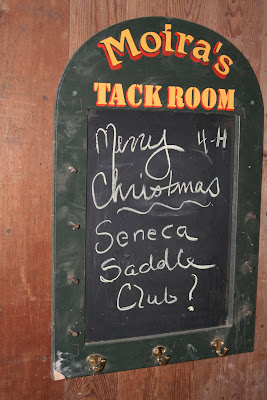 Moira's
TACK ROOM
Merry 4-H
Christmas
Seneca
Saddle
Club?